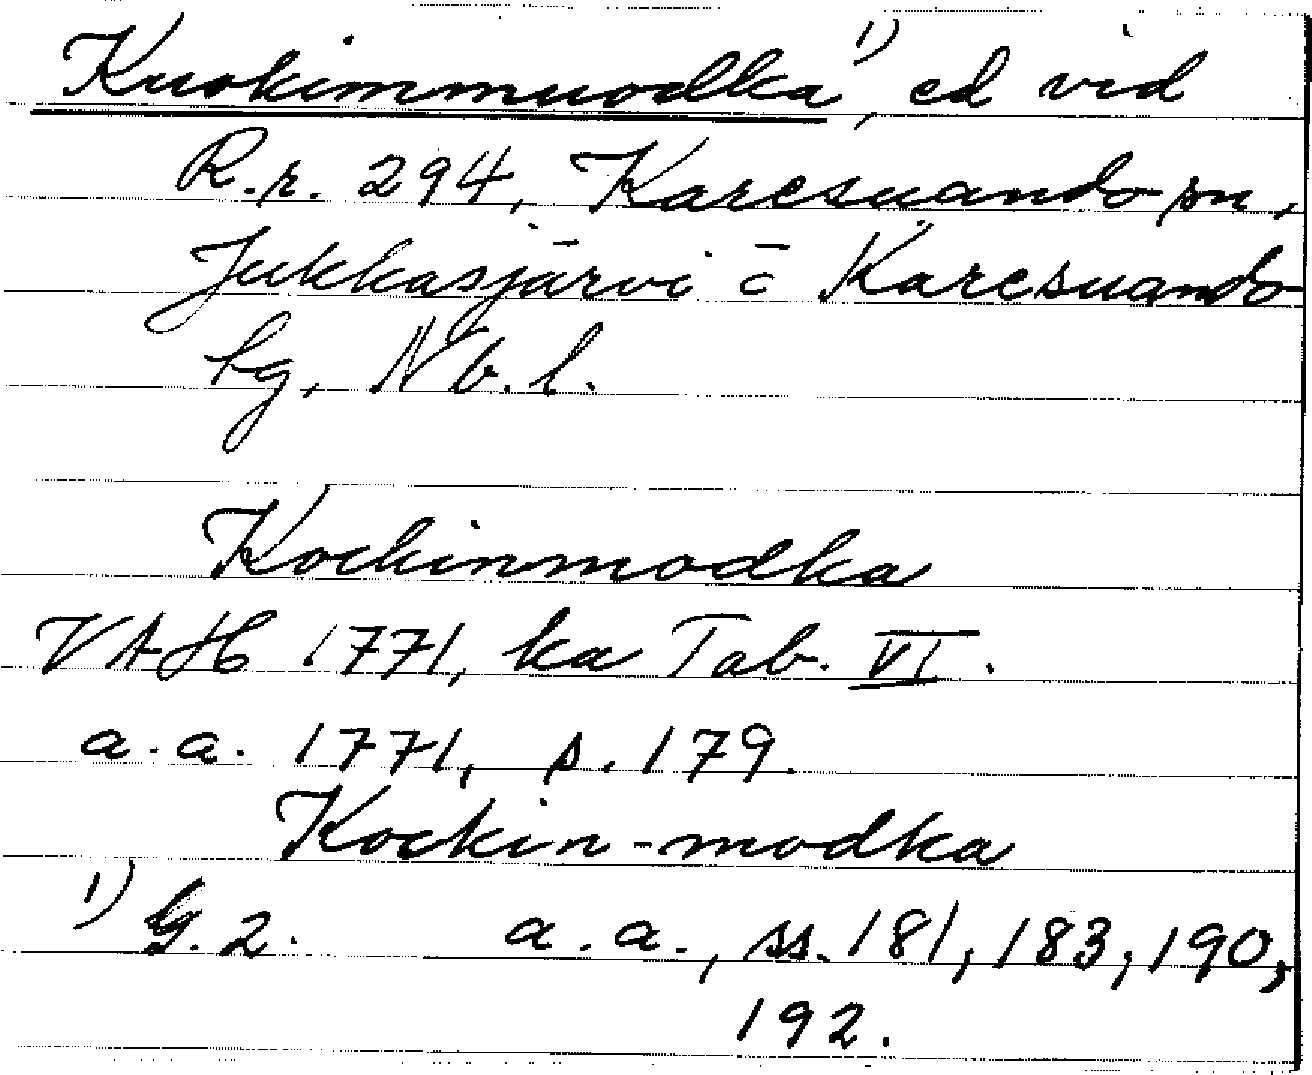 Kuokimmuodka ¹⁾, ed vid
R.r. 294, Karesuando sn,
Jukkasjärvi o Karesuando
tg, Nb. l.
Kockinmodka
VAH 1771, ka Tab. VI.
a.a. 1771, s. 179.
Kockin-modka
¹⁾ G. 2. a.a., ss. 181, 183, 190,
192.